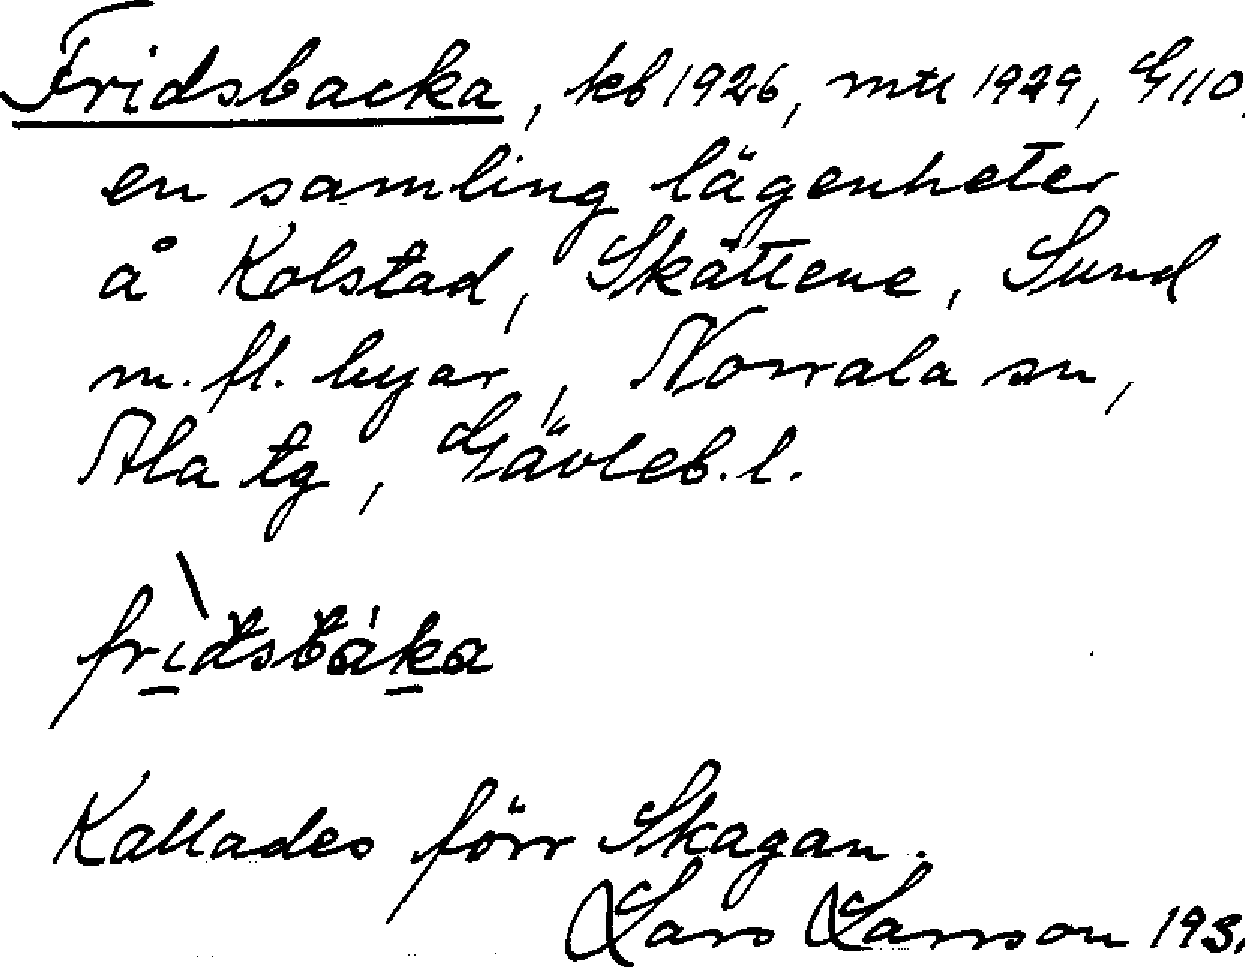 Fridsbacka, kb 1926, mtl 1929, G110
en samling lägenheter
å Kolstad, Skättene, Sund
m.fl. byar, Norrala sn,
Ala tg, Gävleb.l.
Kallades förr Skagan.
Lars Larsson 193